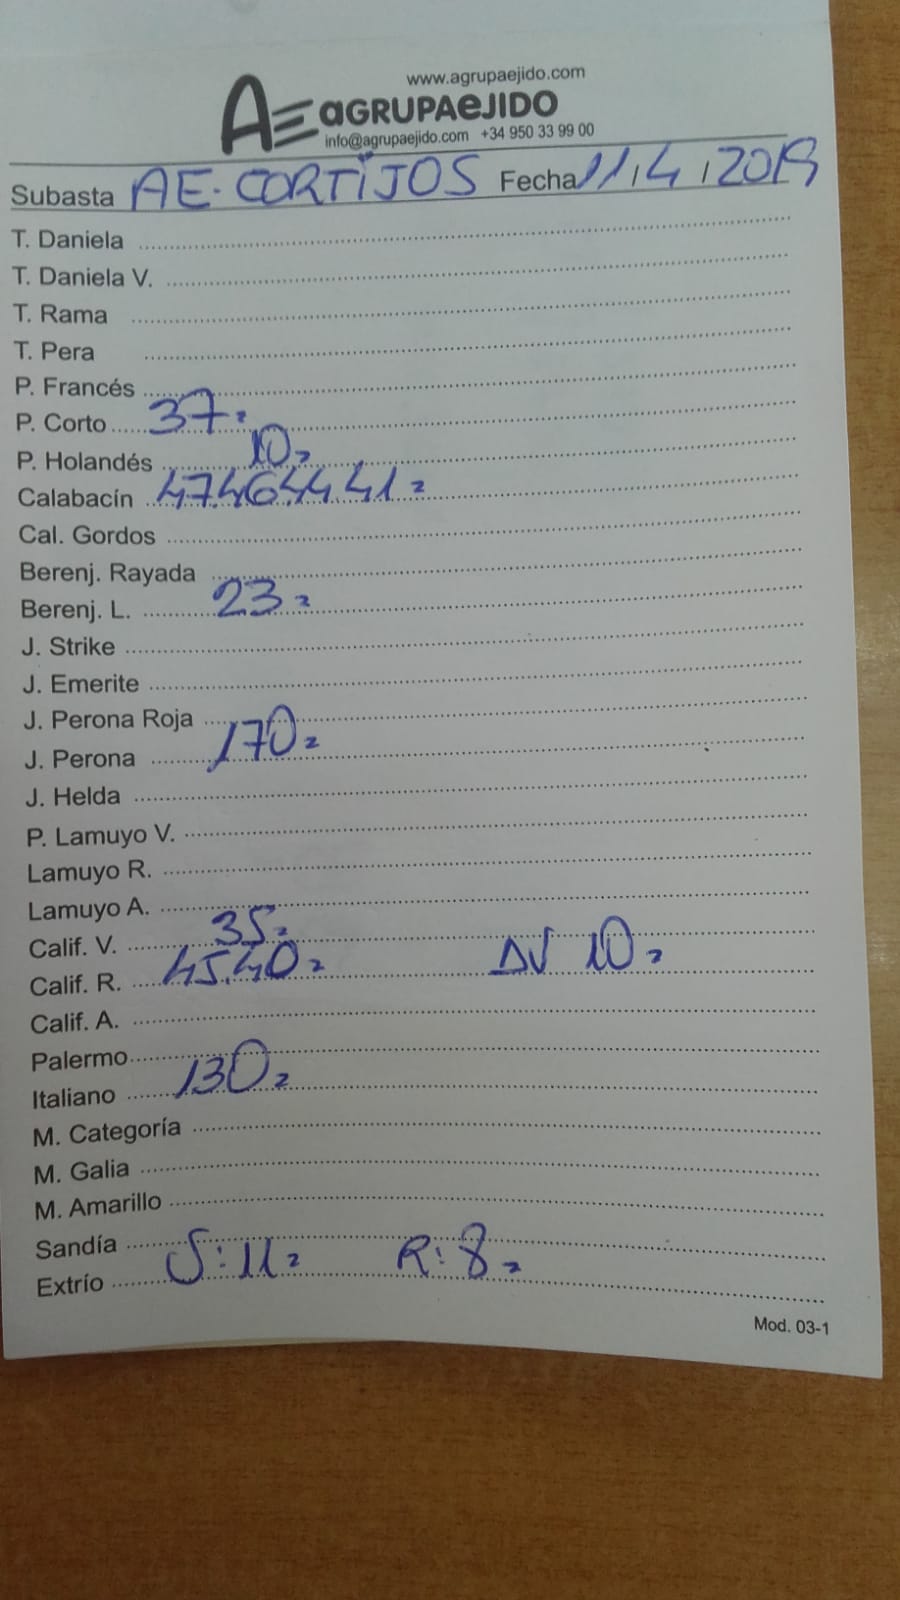 www.agrupaejido.com
AE AGRUPAEJIDO
info@agrupaejido.com +34 950 33 99 00
Subasta AE. CORTIJOS Fecha 11, 4, 2019
T. Daniela
T. Daniela V.
T. Rama
T. Pera
P. Francés
P. Corto 37=
P. Holandés 10=
Calabacín 47.46.44.41=
Cal. Gordos
Berenj. Rayada
Berenj. L. 23=
J. Strike
J. Emerite
J. Perona Roja
J. Perona 170=
J. Helda
P. Lamuyo V.
Lamuyo R.
Lamuyo A.
Calif. V. 35=
Calif. R. 45.40= ΔV 10=
Calif. A.
Palermo
Italiano 130=
M. Categoría
M. Galia
M. Amarillo
Sandía
Extrío S: 11= R: 8=
Mod. 03-1